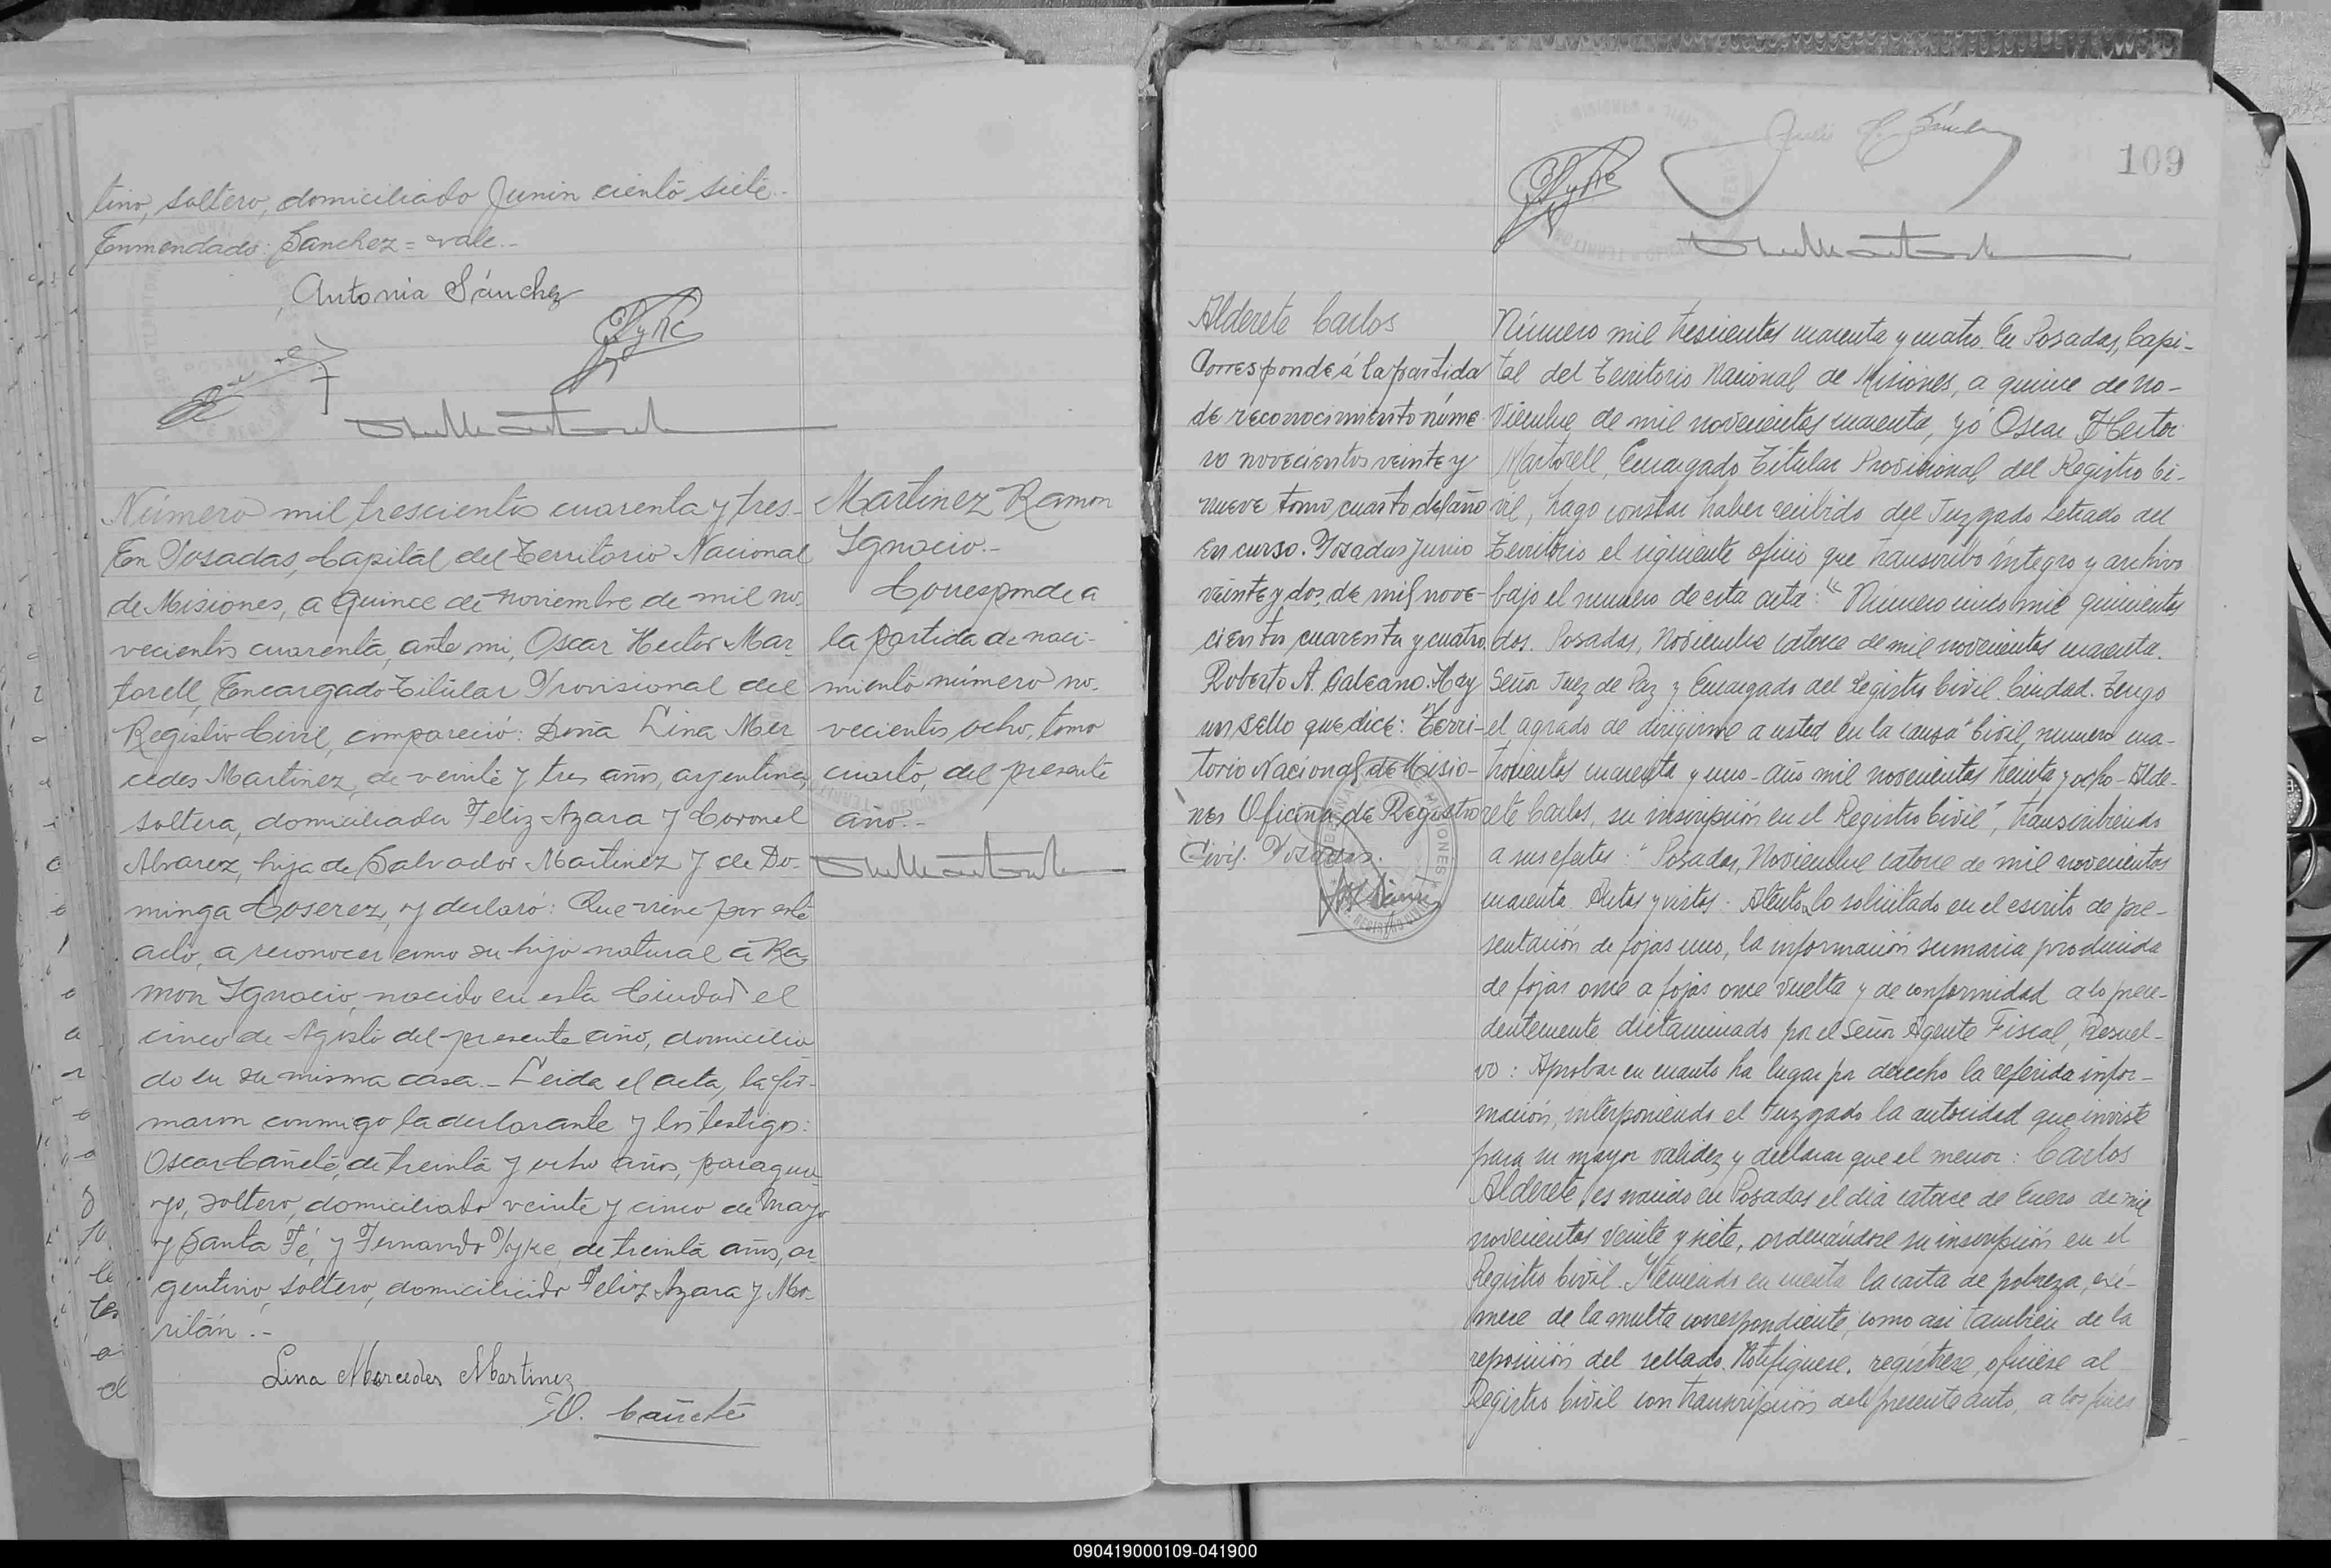 tino, soltero, domiciliado Junin ciento siete.-
Enmendado: Sanchez = vale.-
Antonia Sánchez
Número mil trescientos cuarenta y tres.-
En Posadas, Capital del Territorio Nacional
de Misiones, a quince de noviembre de mil no-
vecientos cuarenta, ante mi, Oscar Hector Mar-
torell, Encargado Titular Provisional del
Registro Civil, compareció: Doña Lina Mer
cedes Martinez, de veinte y tres años, argentina,
soltera, domiciliada Feliz Azara y Coronel
Alvarez, hija de Salvador Martinez y de Do-
minga Coserez, y declaró: Que viene por este
acto, a reconocer como su hijo natural a Ra-
mon Ignacio, nacido en esta Ciudad el
cinco de Agosto del presente año, domicilia-
do en su misma casa.- Leida el acta, la fir-
maron conmigo la declarante y los testigos:
Oscar Cañete, de treinta y ocho años, paragua-
yo, soltero, domiciliado veinte y cinco de Mayo
y Santa Fé, y Fernando Pyke, de treinta años, ar-
gentino, soltero, domiciliado Feliz Azara y Mo-
rilán.-
Lina Mercedes Martinez
O. Cañete
Martinez Ramon
Ignacio.-
Corresponde a
la partida de naci-
miento número no-
vecientos ocho, tomo
cuarto, del presente
año.-
109
Alderete Carlos
Corresponde á la partida
de reconocimiento núme-
ro novecientos veinte y
nueve tomo cuarto del año
en curso. Posadas Junio
veinte y dos, de mil nove-
cientos cuarenta y cuatro
Roberto A. Galeano. Hay
un sello que dice: Terri-
torio Nacional de Misio-
nes Oficina de Registro
Civil. Posadas.
Número mil trescientos cuarenta y cuatro. En Posadas, Capi-
tal del Territorio Nacional de Misiones, a quince de no-
viembre de mil novecientos cuarenta, yo Oscar Hector
Martorell, Encargado Titular Provisional del Registro Ci-
vil, hago constar haber recibido del Juzgado Letrado del
Territorio el siguiente oficio que transcribo íntegro y archivo
bajo el número de esta acta: "Número cinco mil quinientos
dos. Posadas, Noviembre catorce de mil novecientos cuarenta.
Señor Juez de Paz y Encargado del Registro Civil. Ciudad. Tengo
el agrado de dirigirme a usted en la causa "Civil, numero cua-
trocientos cuarenta y uno - año mil novecientos treinta y ocho - Alde-
rete Carlos, su inscripción en el Registro Civil", transcribiendo
a sus efectos: "Posadas, Noviembre catorce de mil novecientos
cuarenta. Autos y vistos: Atento lo solicitado en el escrito de pre-
sentación de fojas uno, la información sumaria producida
de fojas once a fojas once vuelta y de conformidad a lo prece-
dentemente dictaminado por el Señor Agente Fiscal, Resuel-
vo: Aprobar en cuanto ha lugar por derecho la referida infor-
mación, interponiendo el Juzgado la autoridad que inviste
para su mayor validez y declarar que el menor: Carlos
Alderete, es nacido en Posadas el día catorce de Enero de mil
novecientos veinte y siete, ordenándose su inscripción en el
Registro Civil. Y teniendo en cuenta la carta de pobreza, exí-
mese de la multa correspondiente, como asi tambien de la
reposición del sellado. Notifíquese, regístrese, ofíciese al
Registro Civil con transcripción del presente auto, a los fines
090419000109-041900